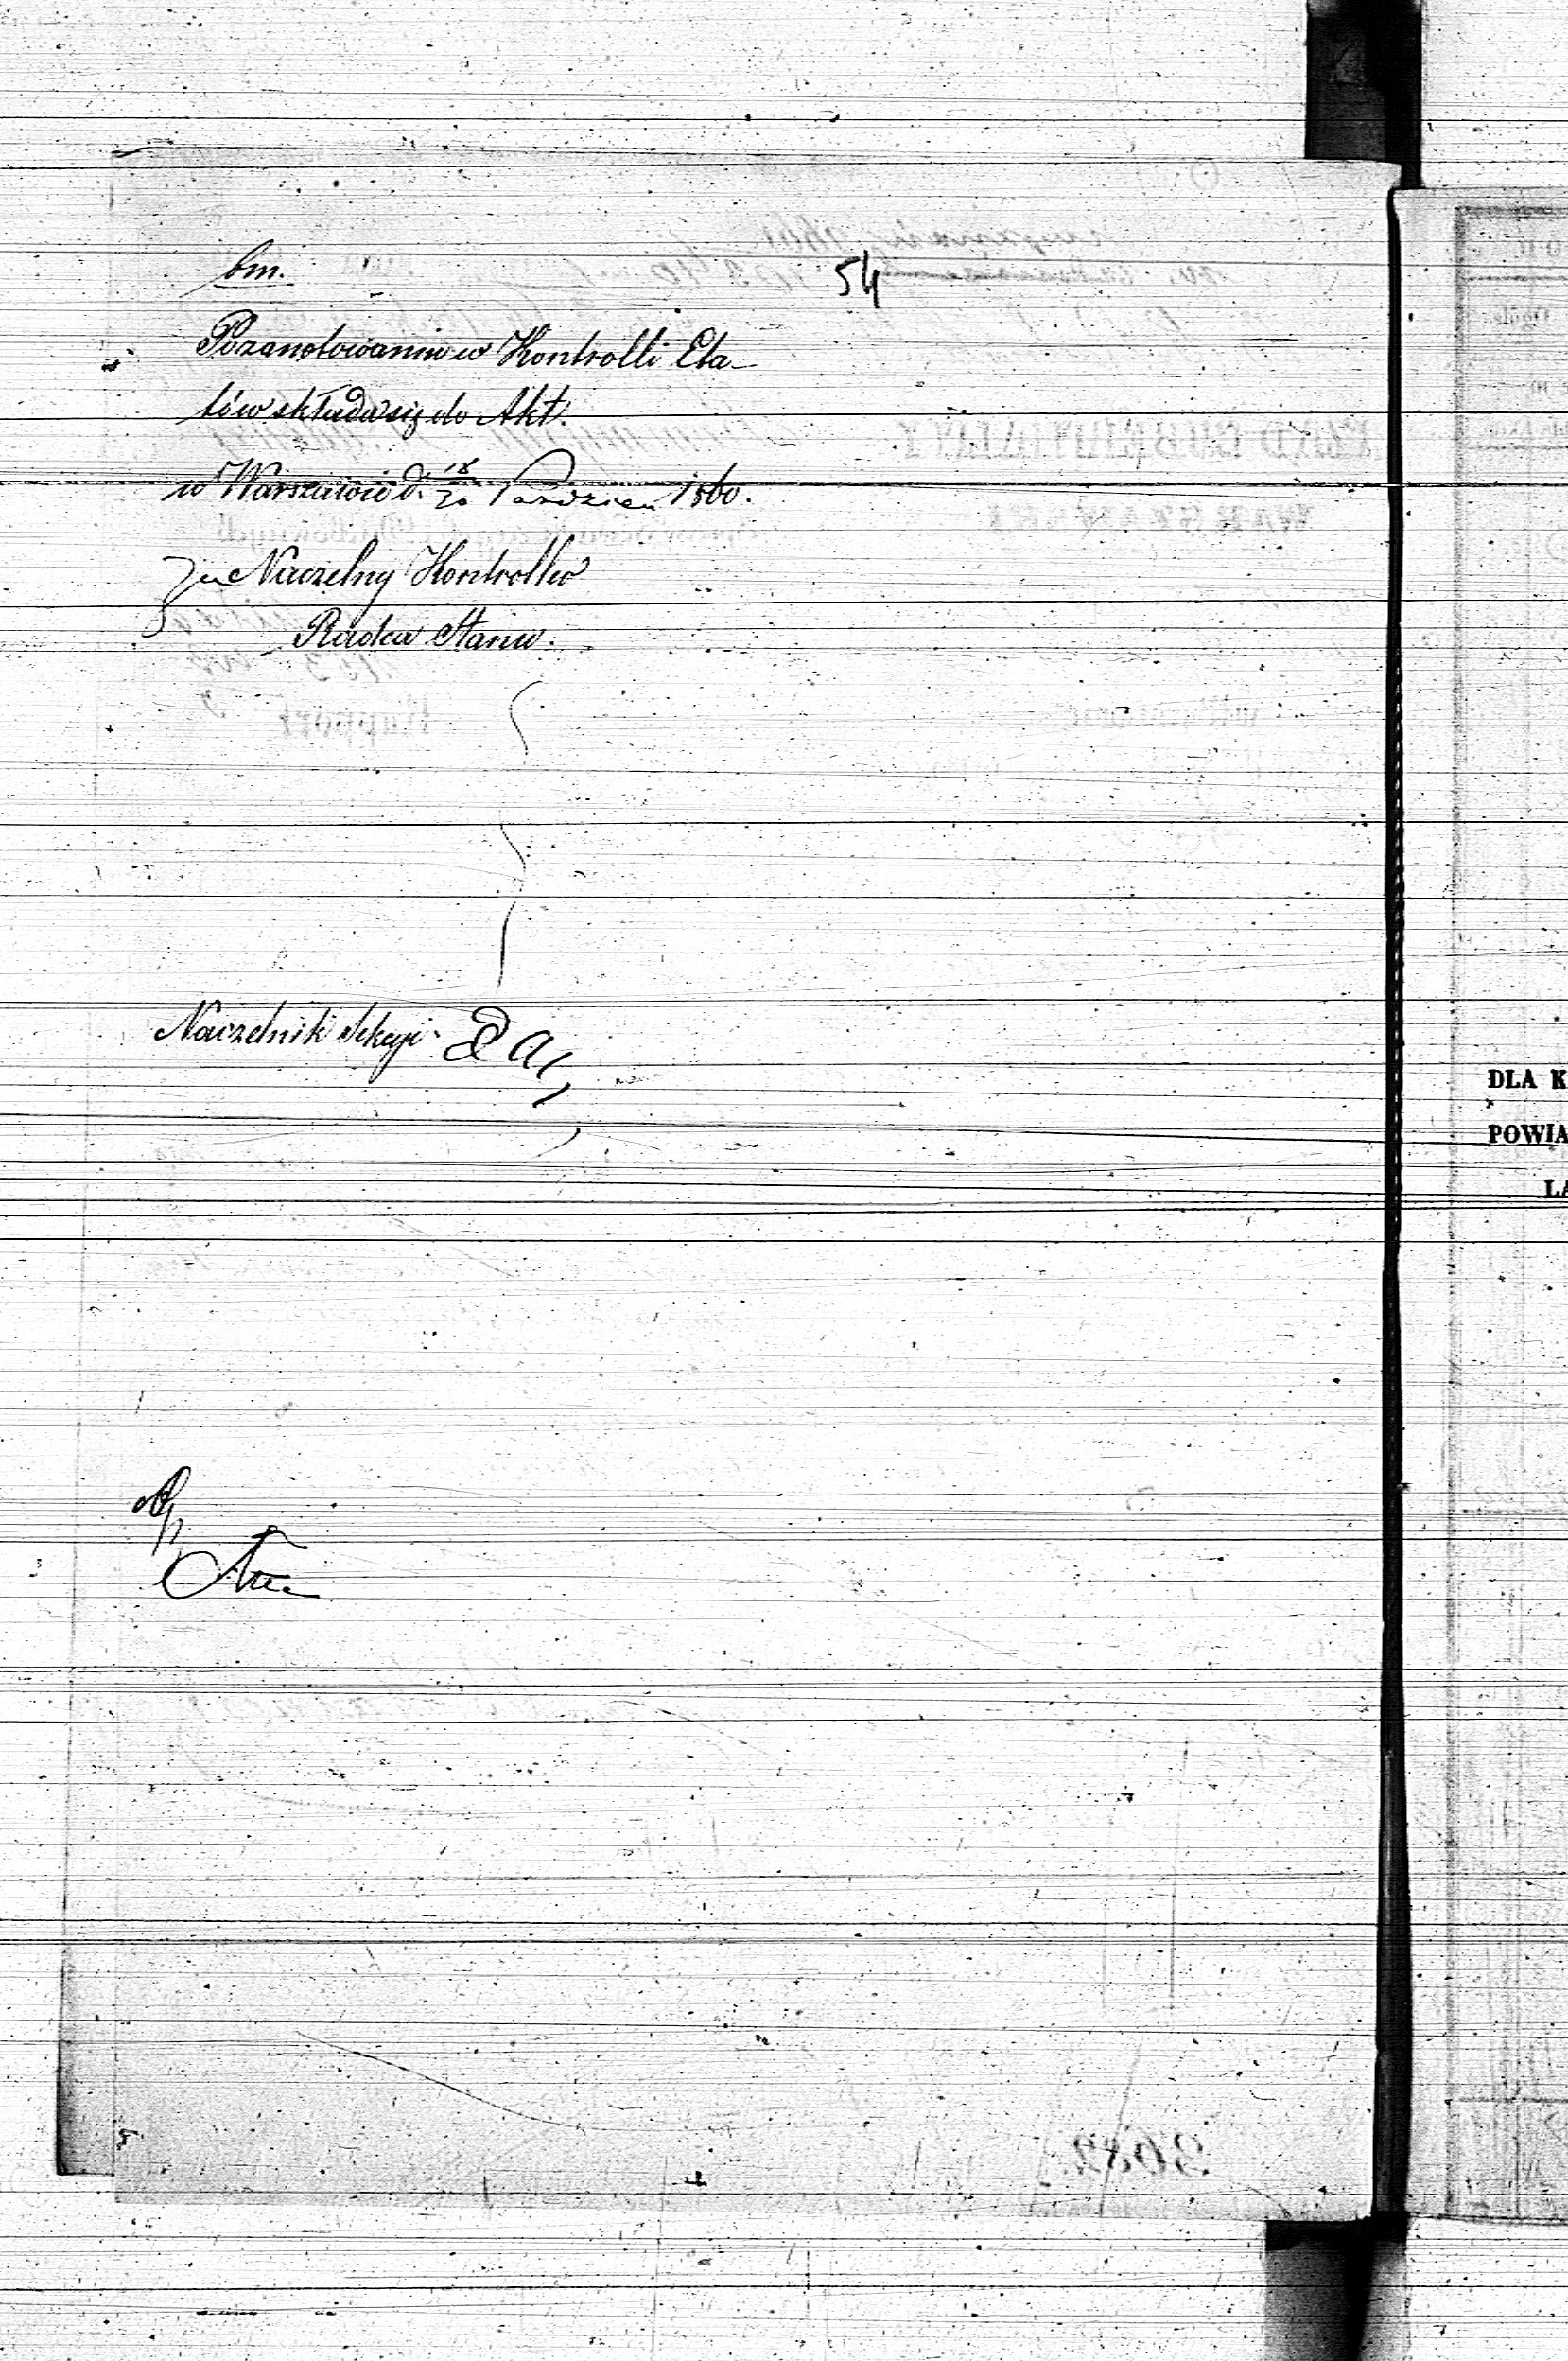 bm.
54
Pozanotowaniu w Kontrolli Eta-
tów składa się do Akt.
w Warszawie d. 18/30 Paździer 1860.
Naczelny Kontroller
Radca Stanu.
Naczelnik Sekcji
DLA K
POWIA
LA